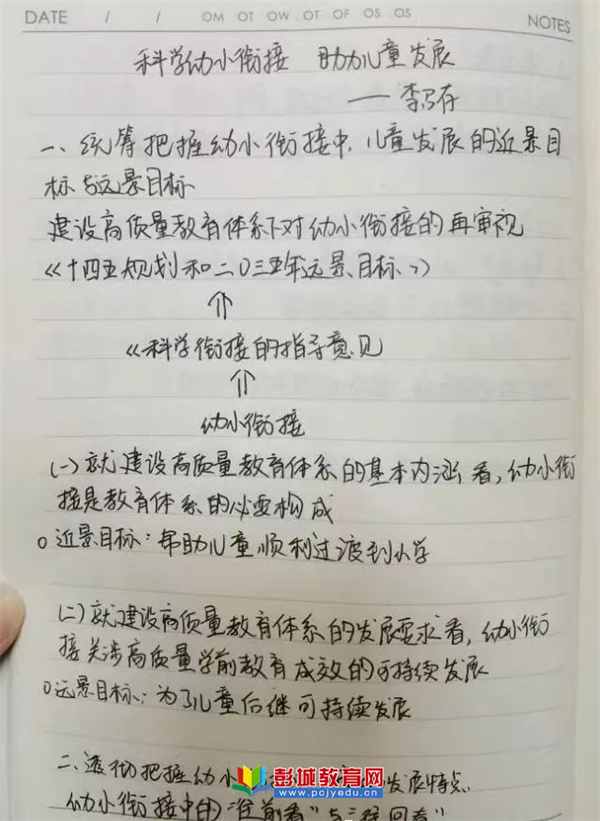 DATE / / OM OT OW OT OF OS OS NOTES
科学幼小衔接 助力儿童发展
—— 李
一、统筹把握幼小衔接中,儿童发展的近景目
标与远景目标
建设高质量教育体系下对幼小衔接的再审视
《十四五规划和二〇三五年远景目标》
⇑
《科学衔接的指导意见
⇑
幼小衔接
(一)就建设高质量教育体系的基本内涵看,幼小衔
接是教育体系的必要构成
○近景目标:帮助儿童顺利过渡到小学
(二)就建设高质量教育体系的发展要求看,幼小衔
接关涉高质量学前教育成效的可持续发展
○远景目标:为了儿童后继可持续发展
二、透彻把握幼小 发展特点
幼小衔接中的“往前看”与“往回看”
彭城教育网
www.pcjyedu.cn